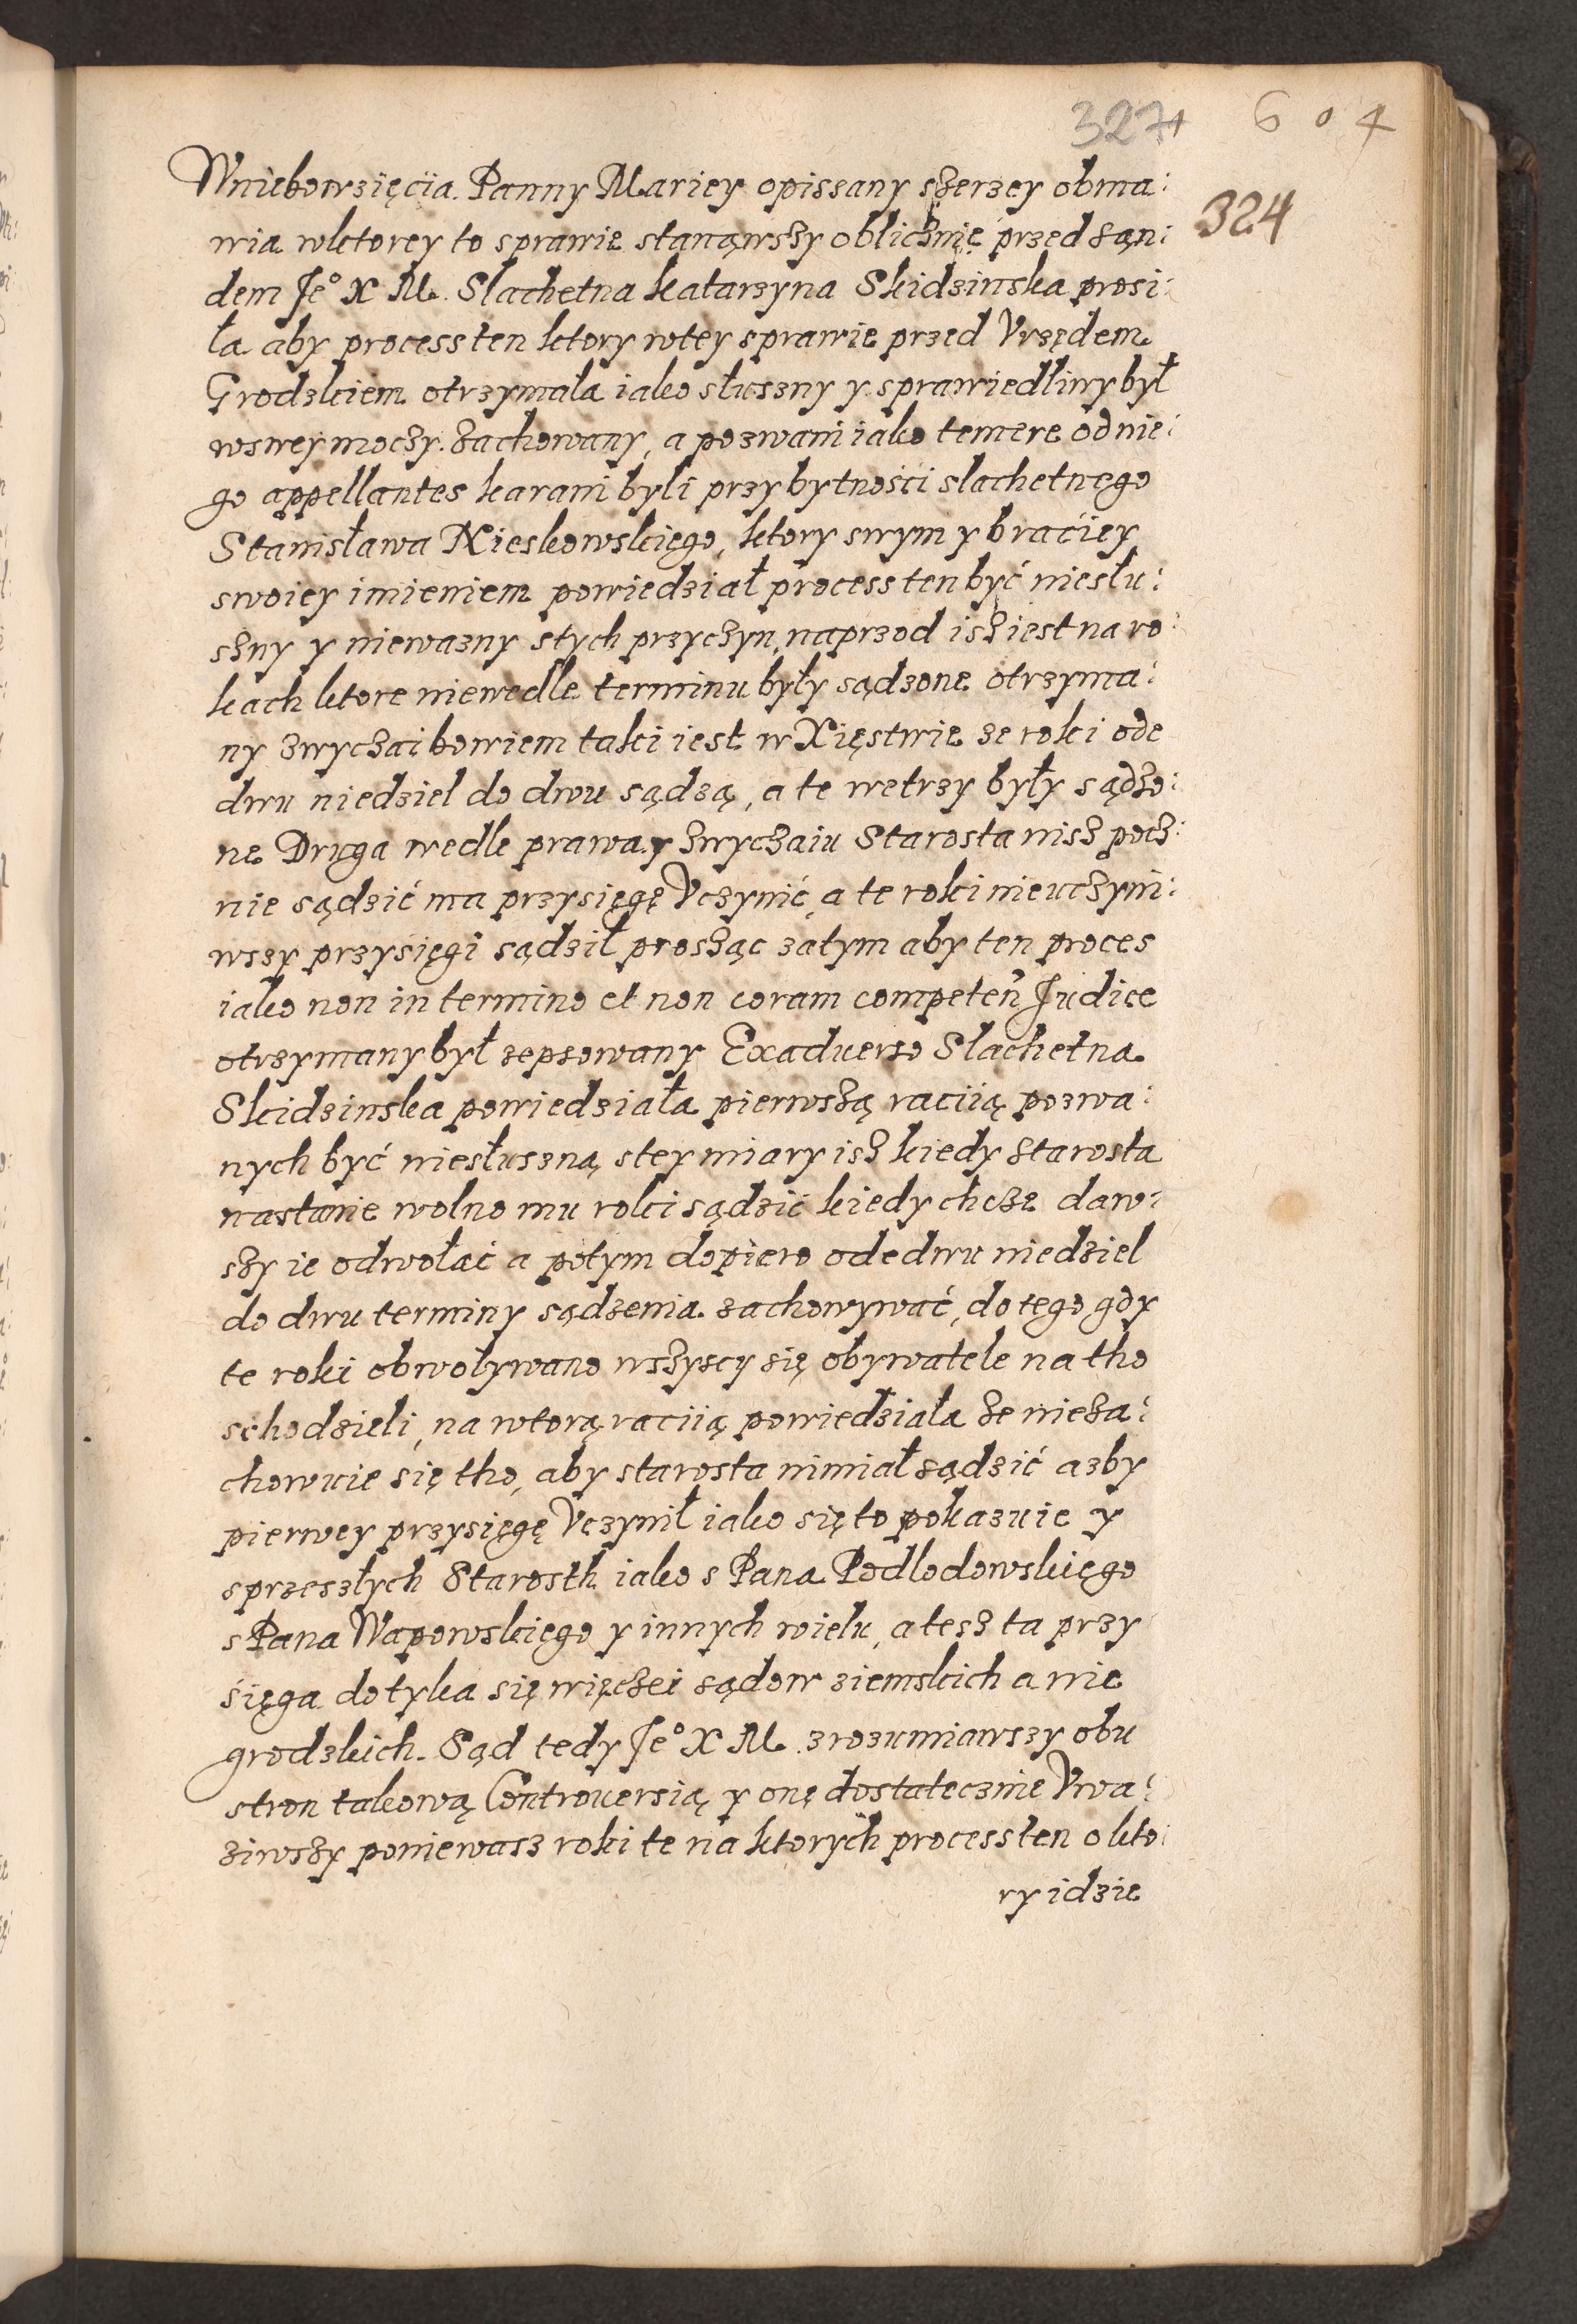 327+ 6 0 4
324
Wniebowzięcia Panny Mariey opissany szerzey obma:
wia wktorey to sprawie stanąwszy obliczni̇e przed sąn:
dem Je° X M. Slachetna Katarzyna Skidzinska prosi:
ła aby process ten ktory wtey sprawie przed Vrzędem
Grodzkiem otrzymała iako słuszny y sprawiedliwy był
wswey moczy zachowany, a pozwani iako temere od nie:
go appellantes karani byli przy bytności slachetnego
Stanisława Nieskowskiego, ktory swym y braciey
swoiey imieniem powiedział process ten być niesłu:
szny y niewazny stych przyczyn, naprzod isz iest na ro:
kach ktore niewedle terminu były sądzone otrzyma:
ny zwyczai bowiem taki iest w Xięstwie ze roki ode
dwu niedziel do dwu sądzą, a te wetrzy były sądzo:
ne Druga wedle prawa y zwyczaiu Starosta nisz pocz:
nie sądzić ma przysięgę Vczynić, a te roki nieuczyni:
wszy przysięgi sądził prosząc zatym aby ten proces
iako non in termino et non coram competeñ Judice
otrzymany był zepsowany Exaduerso Slachetna
Skidzinska powiedziała pierwszą raciią pozwa:
nych być niesłuszną stey miary isz kiedy starosta
nastanie wolno mu roki sądzić kiedy chcze daw:
szy ie odwołać a potym dopiero odedwu niedziel
do dwu terminy sądzenia zachowywać, do tego gdy
te roki obwoływano wszyscy się obywatele na tho
schodzieli, na wtorą raciią powiedziała że nieza:
chowuie się tho, aby starosta nimiał sądzić azby
pierwey przysięgę Vczynił iako się to pokazuie y
sprzeszłych Starosth iako s Pana Podlodowskiego
s Pana Wapowskiego y innych wielu, a tesz ta przy
sięga dotyka się więczei sądow ziemskich a nie
grodzkich. Sąd tedy Je° X M. zrozumiawszy obu
stron takową Controuersią y onę dostatecznie Vwa:
ziwszy poniewasz roki te na ktorych process ten o kto:
ry idzie